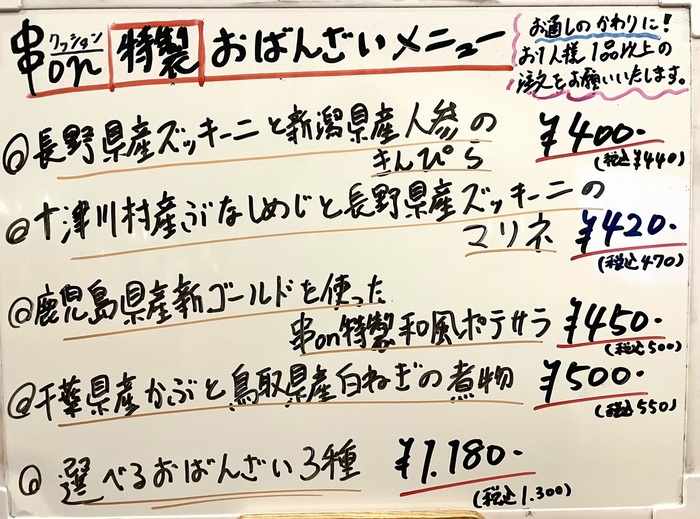 串on クッション 特製 おばんざいメニュー
お通しのかわりに!
お1人様1品以上の
注文をお願いいたします。
◎長野県産ズッキーニと新潟県産人参の
きんぴら
¥400-
(税込¥440)
◎十津川村産ぶなしめじと長野県産ズッキーニの
マリネ
¥420-
(税込470)
◎鹿児島県産新ゴールドを使った
串on特製和風ポテサラ
¥450-
(税込500)
◎千葉県産かぶと鳥取県産白ねぎの煮物
¥500-
(税込550)
◎選べるおばんざい3種
¥1.180-
(税込1.300)